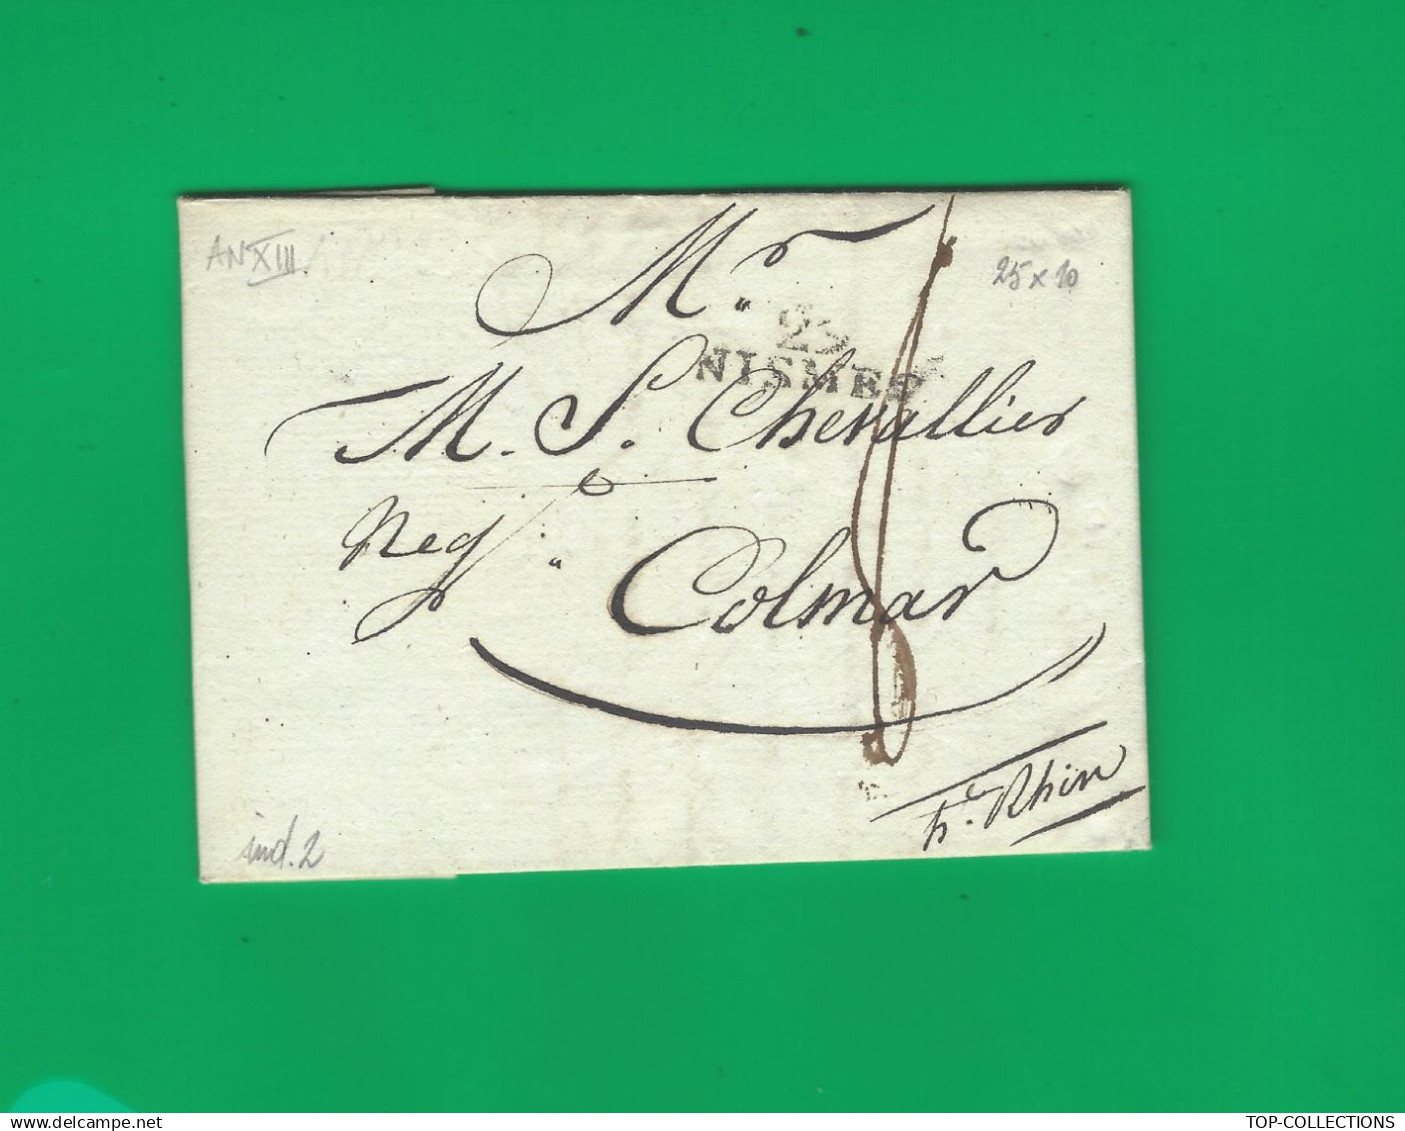 AN XIII
25 x 10
Mr.
29
NISMES
M. S. Chevallier
Neg
Colmar
ht. Rhin
ind. 2
www.delcampe.net
TOP-COLLECTIONS